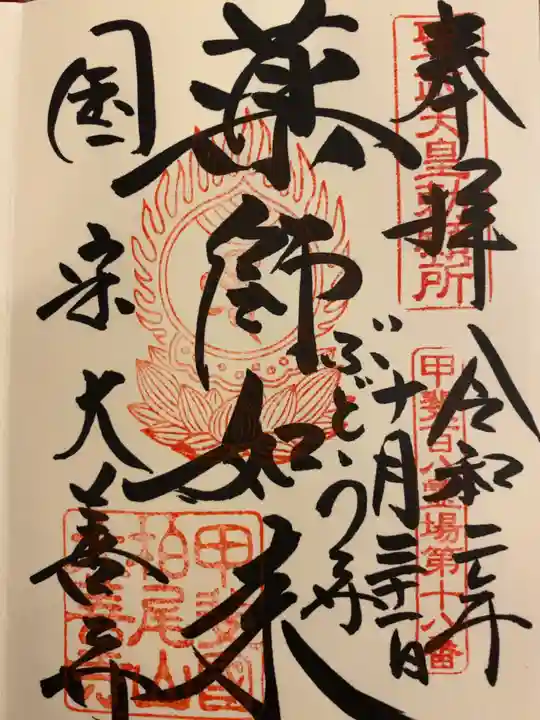 奉拝 令和二年
十月三十一日
ぶどう寺
薬師如来
国宝 大善寺
聖武天皇勅願所
甲斐百八霊場第十八番
甲斐國
柏尾山
大善寺